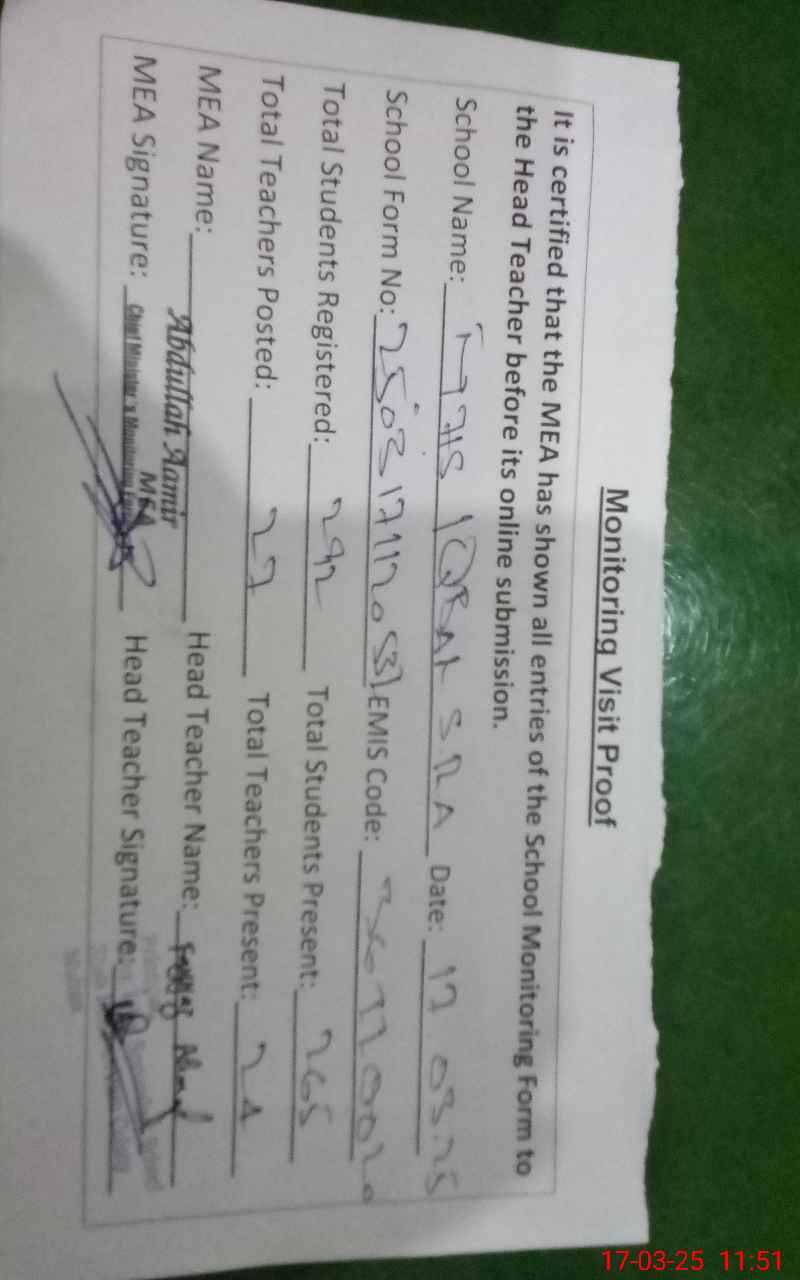 Monitoring Visit Proof
It is certified that the MEA has shown all entries of the School Monitoring Form to
the Head Teacher before its online submission.
School Name: IQBAL Date: 17.03.25
School Form No: EMIS Code:
Total Students Registered: 292 Total Students Present: 265
Total Teachers Posted: 27 Total Teachers Present:
MEA Name: Abdullah Aamir Head Teacher Name: Ahmad
MEA
MEA Signature: Chief Minister's Monitoring Head Teacher Signature:
17-03-25 11:51